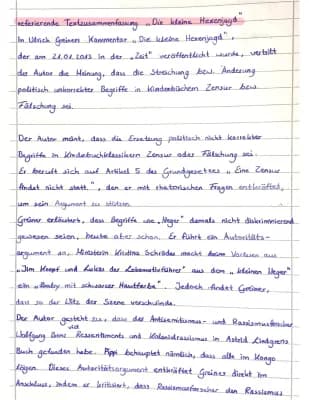 referierende Textzusammenfassung „Die kleine Hexenjagd"
In Ulrich Greiners Kommentar „Die kleine Hexenjagd",
der am 21.01.2013 in der „Zeit" veröffentlicht wurde, vertritt
der Autor die Meinung, dass die Streichung bzw. Änderung
politisch unkorrekter Begriffe in Kinderbüchern Zensur bzw.
Fälschung sei.
Der Autor meint, dass die Ersetzung politisch nicht korrekter
Begriffe in Kinderbuchklassikern Zensur oder Fälschung sei.
Er beruft sich auf Artikel 5 des Grundgesetzes „Eine Zensur
findet nicht statt.", den er mit rhetorischen Fragen entkräftet,
um sein Argument zu stützen.
Greiner erläutert, dass Begriffe wie „Neger" damals nicht diskriminierend
gewesen seien, heute aber schon. Er führt ein Autoritäts-
argument an. Ministerin Kristina Schröder macht beim Vorlesen aus
„Jim Knopf und Lukas der Lokomotivführer" aus dem „kleinen Neger"
ein „Baby mit schwarzer Hautfarbe". Jedoch findet Greiner,
dass so der Witz der Szene verschwinde.
Der Autor gesteht zu, dass der Antisemitismus- und Rassismusforscher
Wolfgang Benz Ressentiments und Kolonialrassismus in Astrid Lindgrens
Buch gefunden habe. Pippi behauptet nämlich, dass alle im Kongo
lögen. Dieses Autoritätsargument entkräftet Greiner direkt im
Anschluss, indem er kritisiert, dass Rassismusforscher den Rassismus